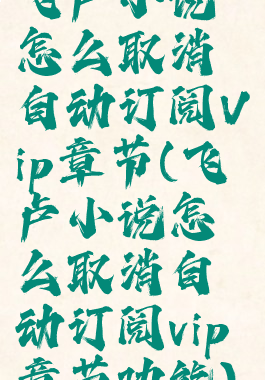 飞卢小说
怎么取消
自动订阅v
ip章节(飞
卢小说怎
么取消自
动订阅vip
章节功能)